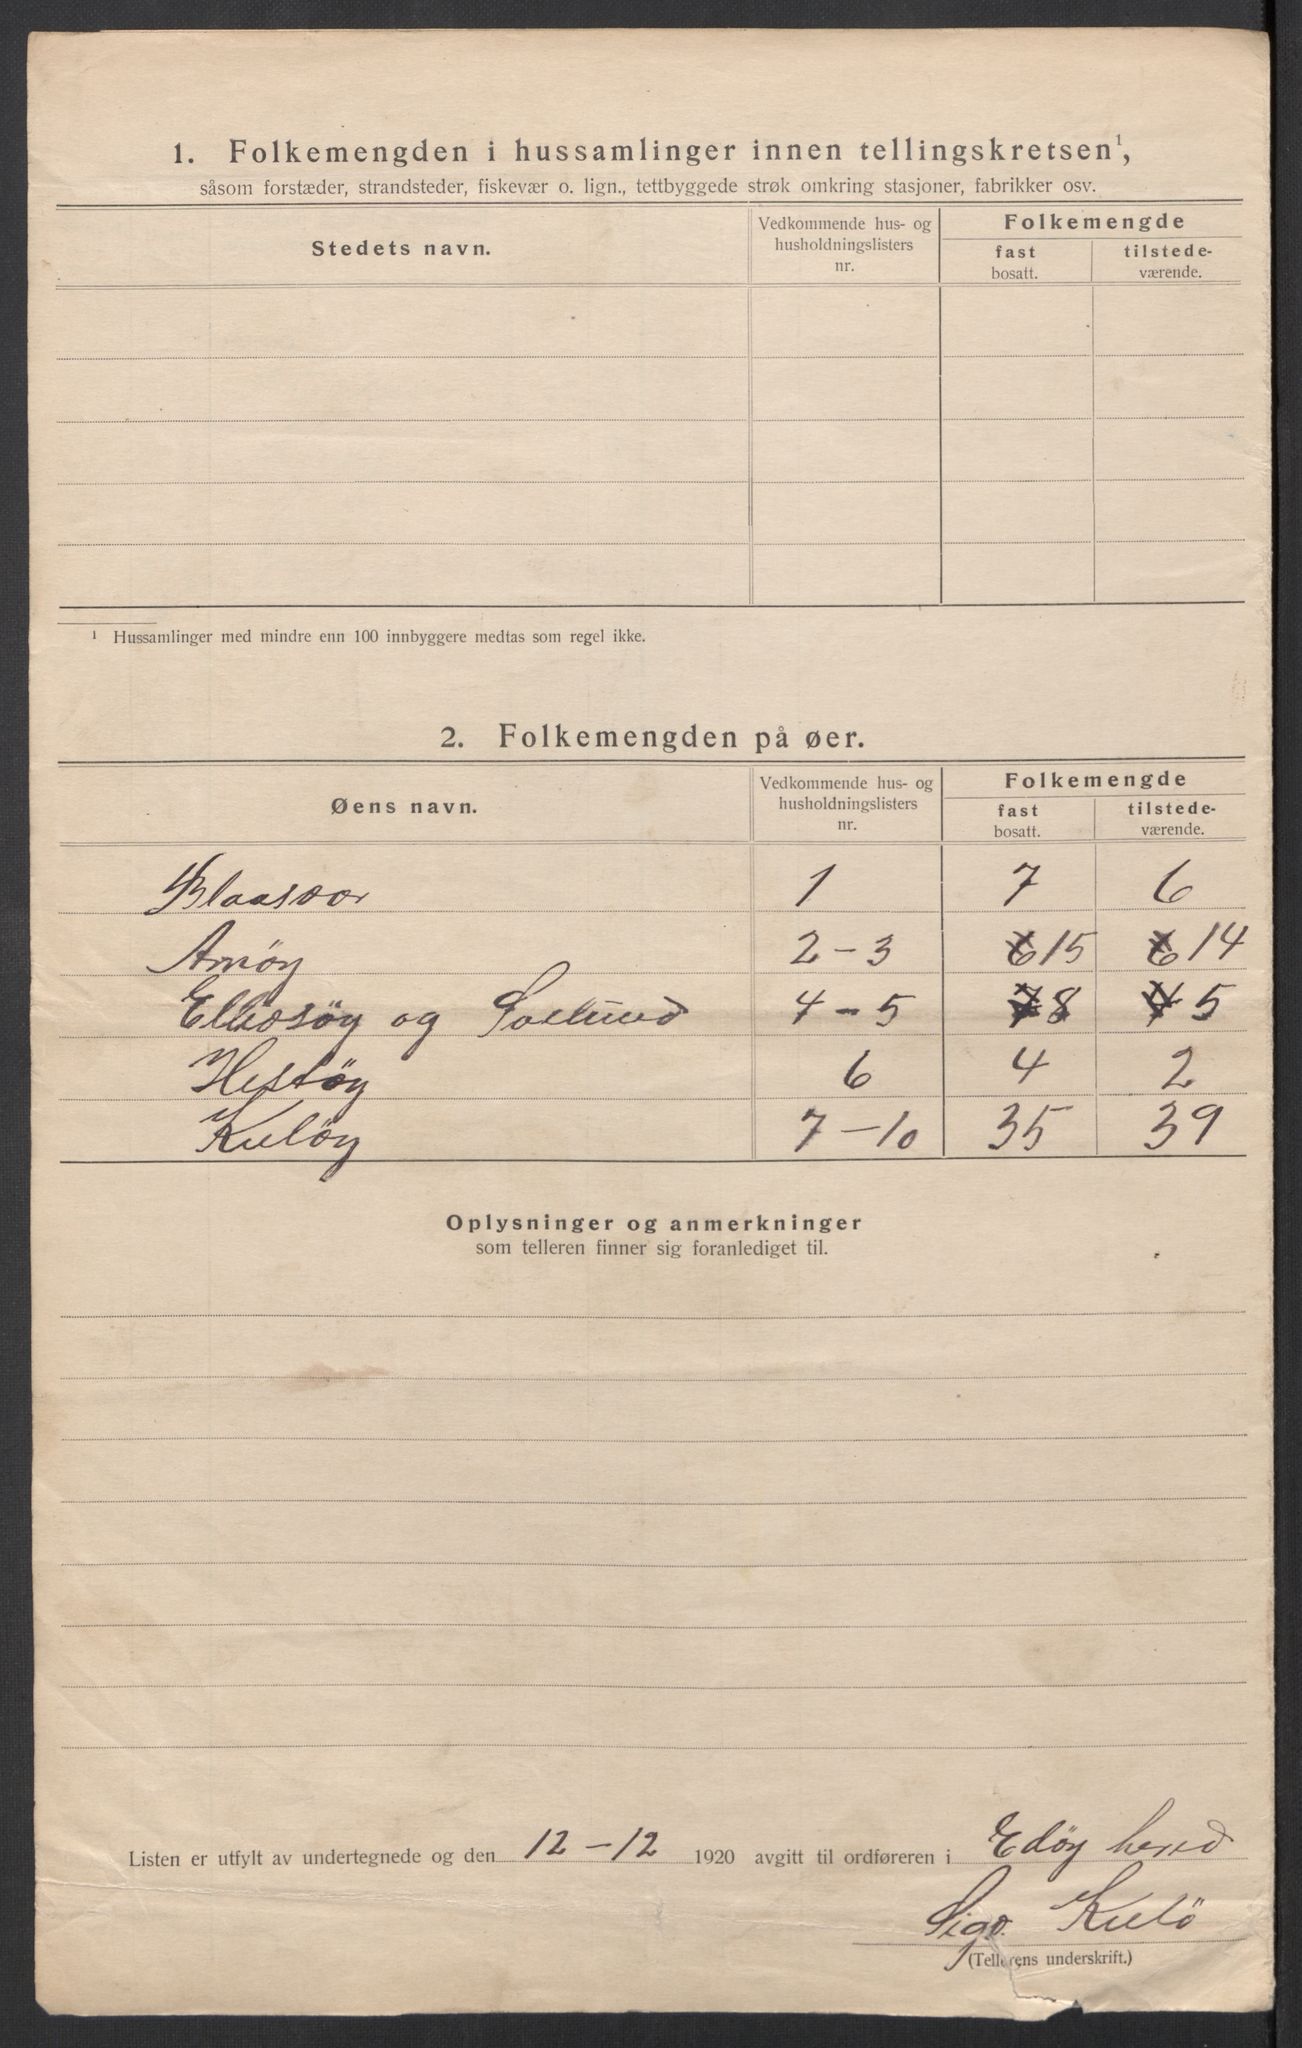 1. Folkemengden i hussamlinger innen tellingskretsen¹,
såsom forstæder, strandsteder, fiskevær o. lign., tettbyggede strøk omkring stasjoner, fabrikker osv.
Stedets navn.
Vedkommende hus- og
husholdningslisters
nr.
Folkemengde
fast
bosatt.
tilstede-
værende.
¹ Hussamlinger med mindre enn 100 innbyggere medtas som regel ikke.
2. Folkemengden på øer.
Øens navn.
Vedkommende hus- og
husholdningslisters
nr.
Folkemengde
fast
bosatt.
tilstede-
værende.
Blaasvær 1 7 6
Arnöy 2-3 6 15 6 14
og 4-5 7 8 4 5
Hestöy 6 4 2
Kulöy 7-10 35 39
Oplysninger og anmerkninger
som telleren finner sig foranlediget til.
Listen er utfylt av undertegnede og den 12-12 1920 avgitt til ordføreren i Edöy hered
Sigv. Kulö
(Tellerens underskrift.)